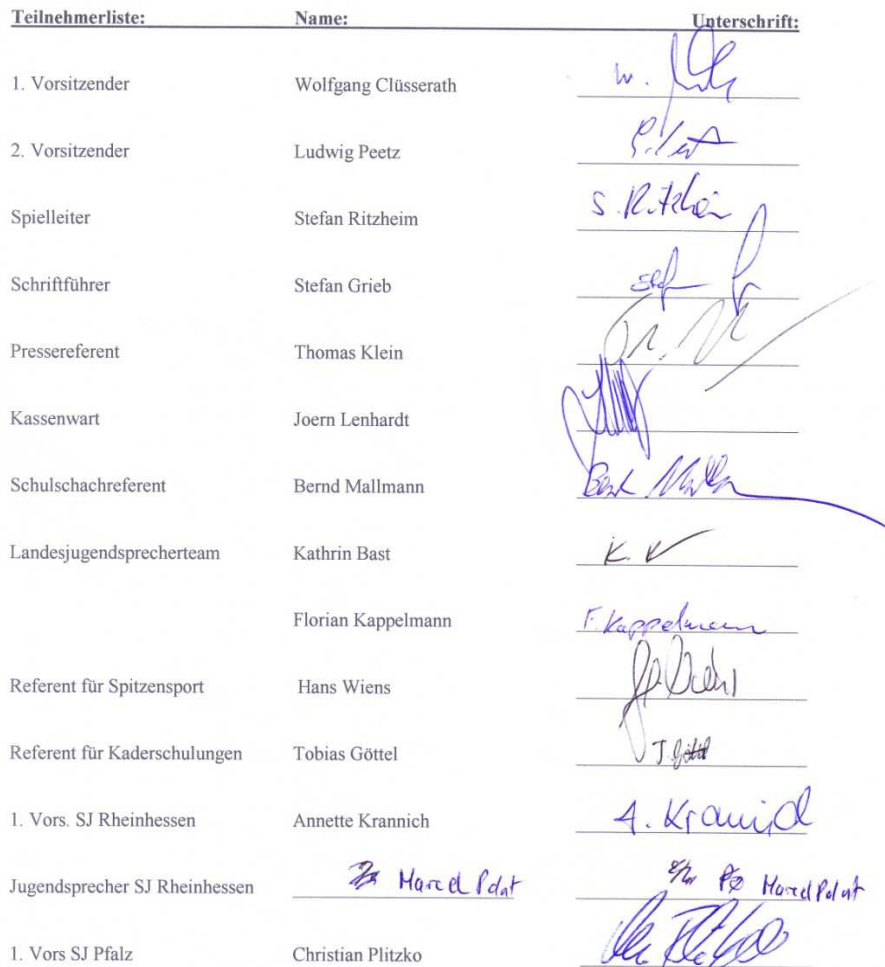 Teilnehmerliste: Name: Unterschrift:
1. Vorsitzender Wolfgang Clüsserath W.
2. Vorsitzender Ludwig Peetz
Spielleiter Stefan Ritzheim S. Ritzheim
Schriftführer Stefan Grieb
Pressereferent Thomas Klein
Kassenwart Joern Lenhardt
Schulschachreferent Bernd Mallmann
Landesjugendsprecherteam Kathrin Bast K.
Florian Kappelmann F. Kappelmann
Referent für Spitzensport Hans Wiens
Referent für Kaderschulungen Tobias Göttel
1. Vors. SJ Rheinhessen Annette Krannich A. Krannich
Jugendsprecher SJ Rheinhessen Marcel Polat Marcel Polat
1. Vors SJ Pfalz Christian Plitzko